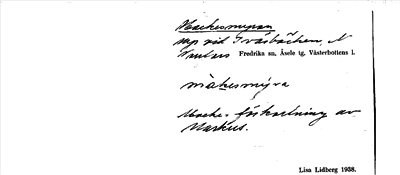 Mackesmyran
myr vid Tväråbäcken, N
Vänders Fredrika sn, Åsele tg, Västerbottens l.
màkesmy̆ra
Macke- förkortning av
Markus.
Lisa Lidberg 1938.